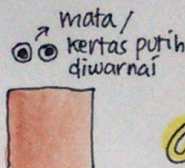 mata /
kertas putih
diwarnai